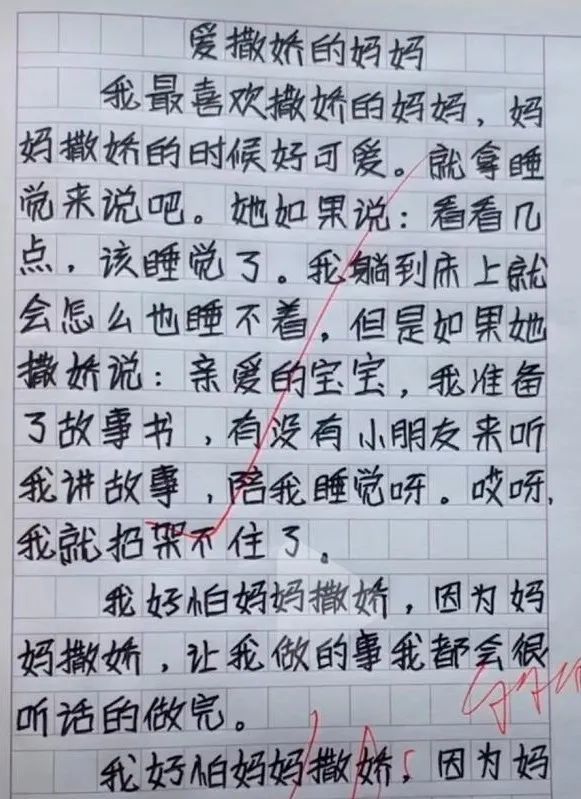 爱撒娇的妈妈
我最喜欢撒娇的妈妈，妈
妈撒娇的时候好可爱。就拿睡
觉来说吧。她如果说：看看几
点，该睡觉了。我躺到床上就
会怎么也睡不着，但是如果她
撒娇说：亲爱的宝宝，我准备
了故事书，有没有小朋友来听
我讲故事，陪我睡觉呀。哎呀，
我就招架不住了。
我好怕妈妈撒娇，因为妈
妈撒娇，让我做的事我都会很
听话的做完。
我好怕妈妈撒娇，因为妈